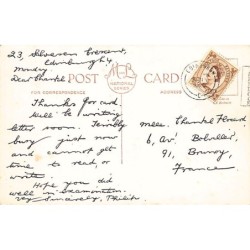 23, Silverson Crescent,
Edinburgh 4
Monday
Dear Chantal
POST CARD
FOR CORRESPONDENCE
ADDRESS
Thanks for card.
Will be writing
letter soon. Terribly
busy just now
and cannot get
time to read or
write.
Hope you did
well in examination.
Very sincerely, Philip
Mlle. Chantal
6, Av.
91, Brunoy,
France